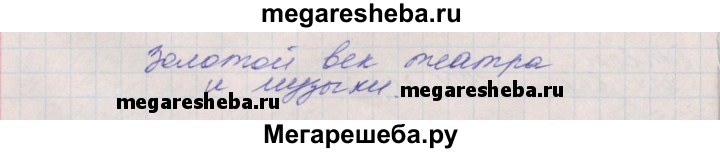 megaresheba.ru
Золотой век театра
и музыки.
megaresheba.ru megaresheba.ru
Мегарешеба.ру